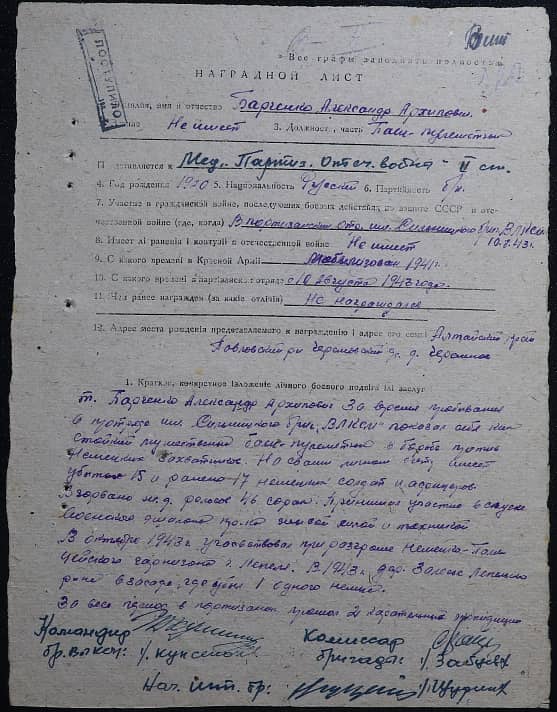 „Все графы заполнять полностью
НАГРАДНОЙ ЛИСТ
имя и отчество Барченко Александр Архипович
Не имеет 3. Должность, часть
Представляется к Мед. „Партиз. Отеч. война" II ст.
4. Год рождения 1920 5. Национальность Русский 6. Партийность б/п.
7. Участие в гражданской войне, последующих боевых действиях по защите СССР и оте-
чественной войне (где, когда) В партизанск. отр. им. бриг. ВЛКСМ
8. Имеет ли ранения и контузии в отечественной войне Не имеет
9. С какого времени в Красной Армии мобилизован 1941г.
10. С какого времени в партизанском отряде с 10 августа 1943 года.
11. Чем ранее награжден (за какие отличия) Не награждался
12. Адрес места рождения представляемого к награждению и адрес его семьи Алтайский край
Павловский р-н
1. Краткое, конкретное изложение личного боевого подвига или заслуг
т. Барченко Александр Архипович За время пребывания
в п/отряде им. бриг. „ВЛКСМ" показал себя как
стойкий в борьбе против
немецких захватчиков. На своем личном счету имеет
убитых 15 и ранено 17 немецких солдат и офицеров.
Взорвано ж.д. рельсов 46 Принимал участие в спуске
эшелона пр-ка живой силой и техникой
В октябре 1943г. участвовал при разгроме немецко-
гарнизона г. Лепеля. В 1943г. дер. Лепельс
в засаде, где убил 1 одного немца.
За весь период в партизанах прошел 2 карательные экспедиции
Командир Комиссар
бр. ВЛКСМ: бригады:
Нач. шт. бр: